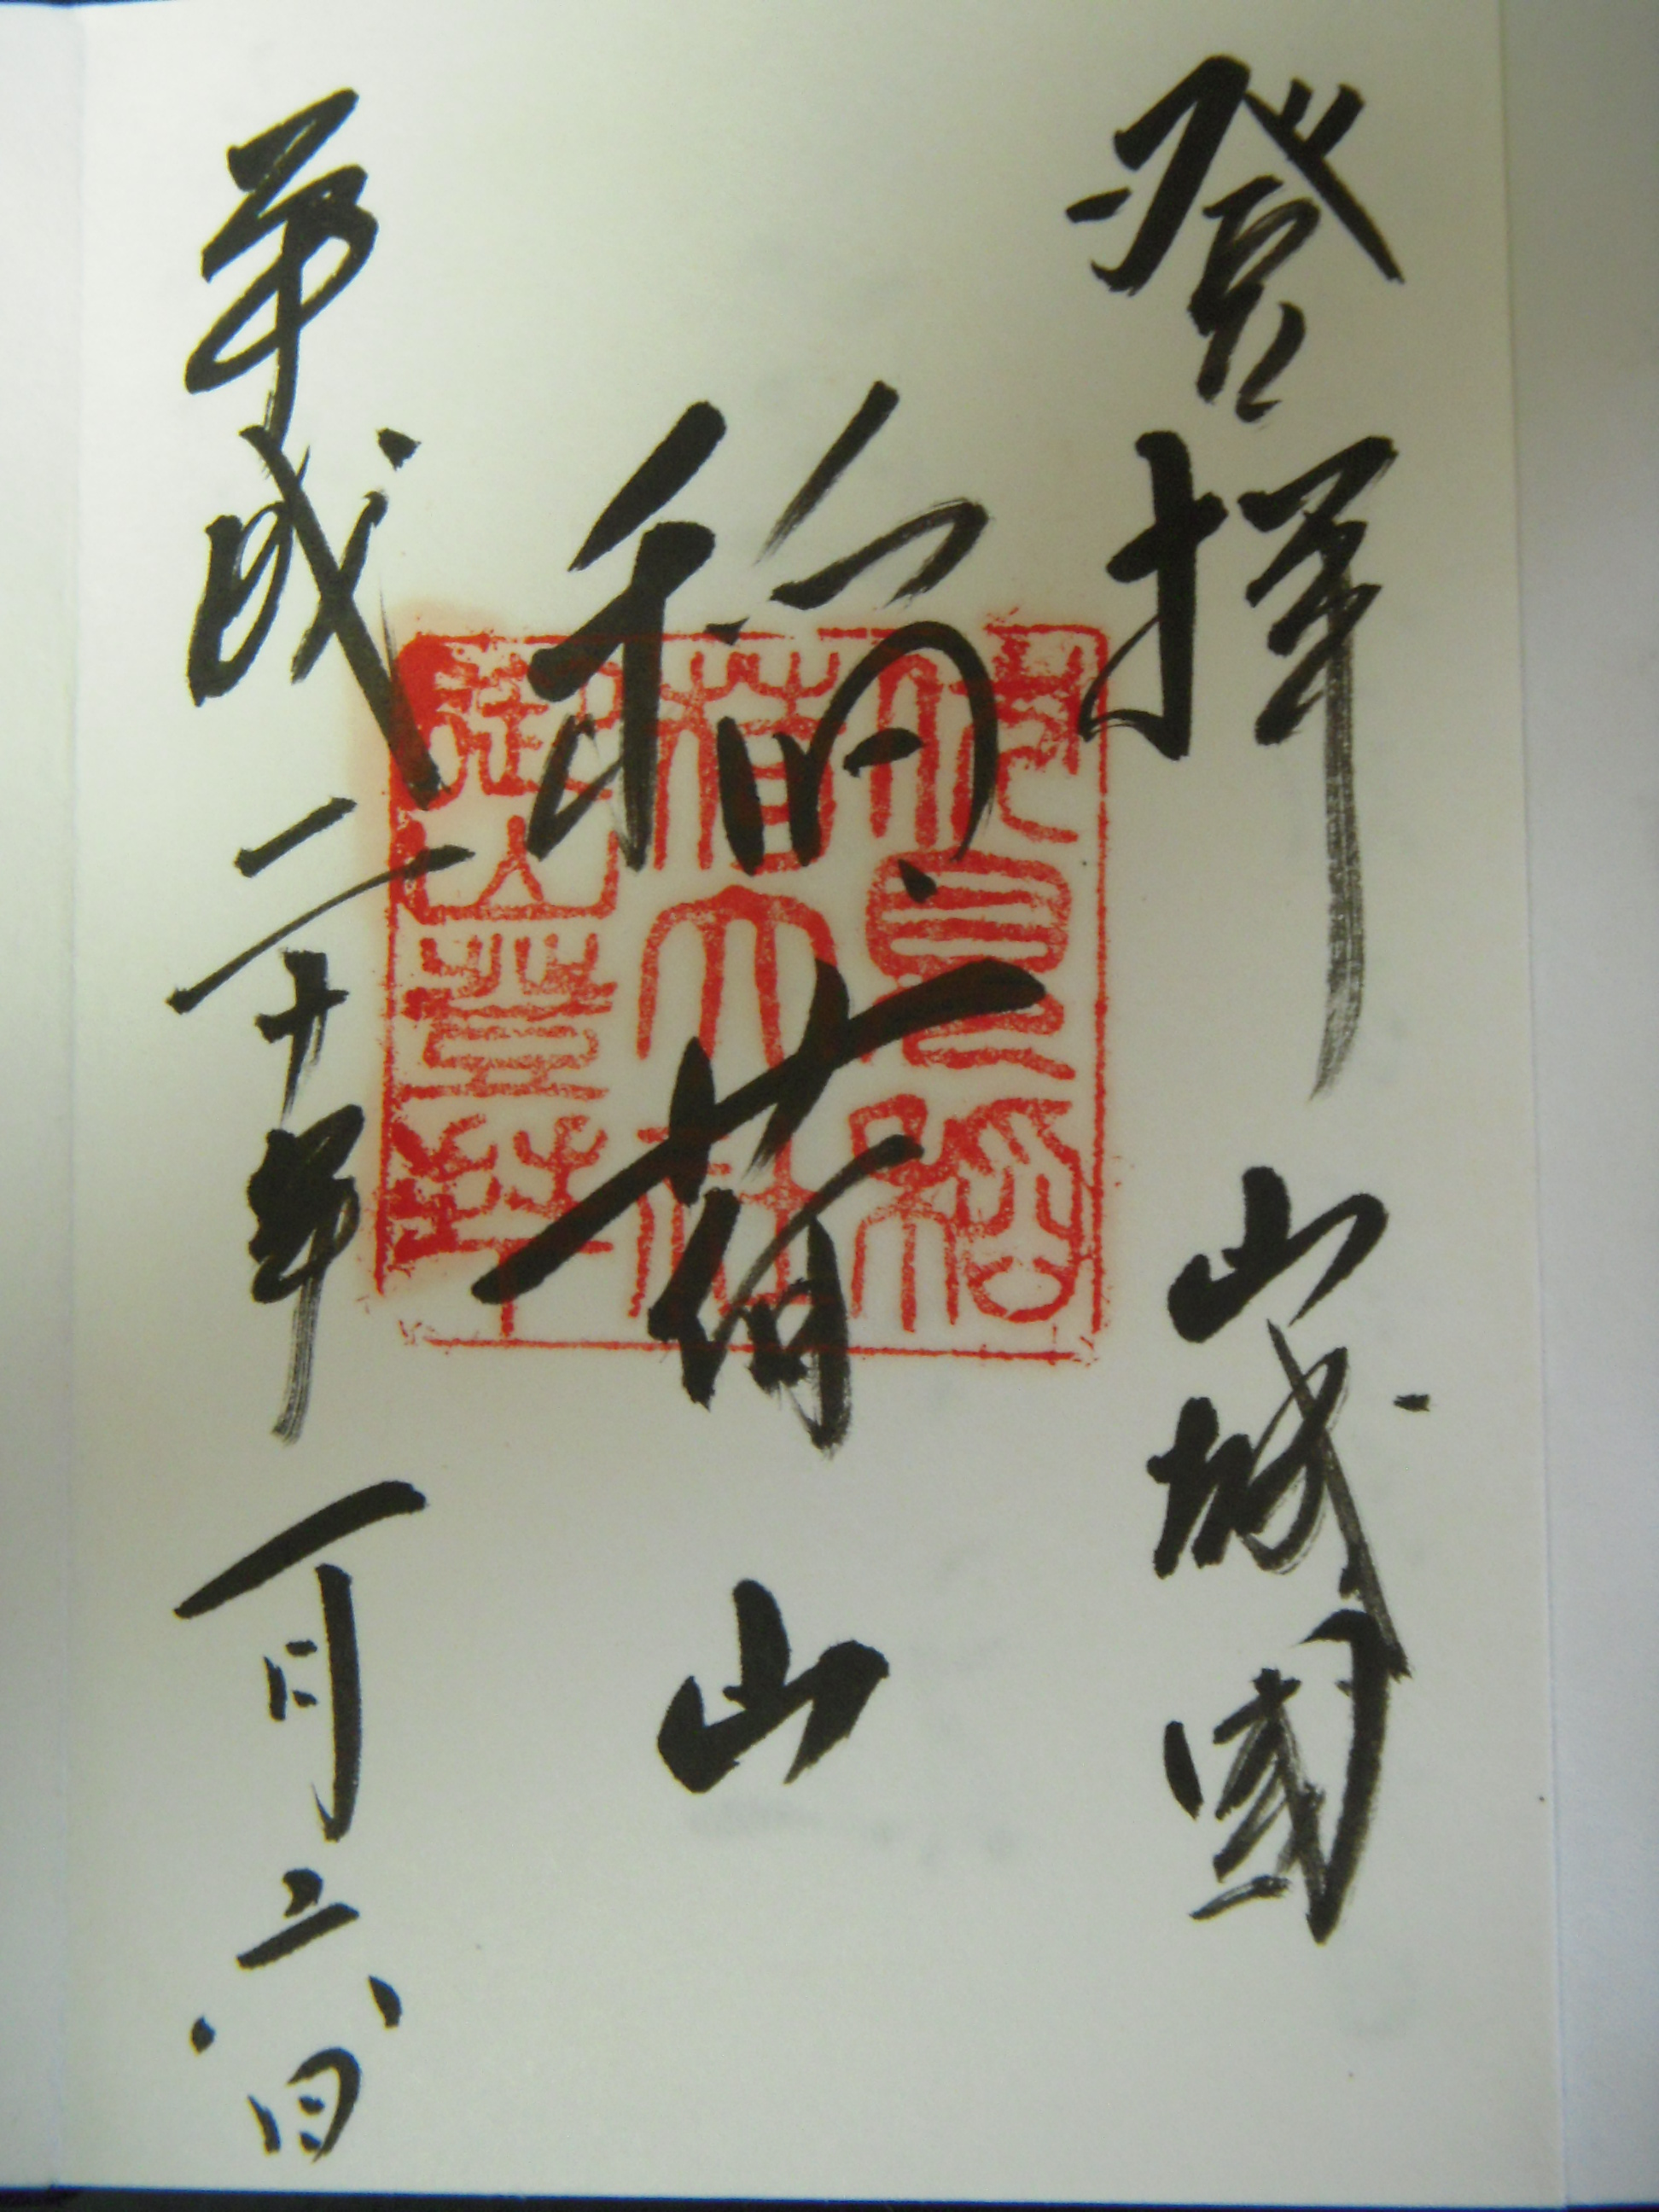 登拝 山城國
稲荷山
平成二十年一月六日